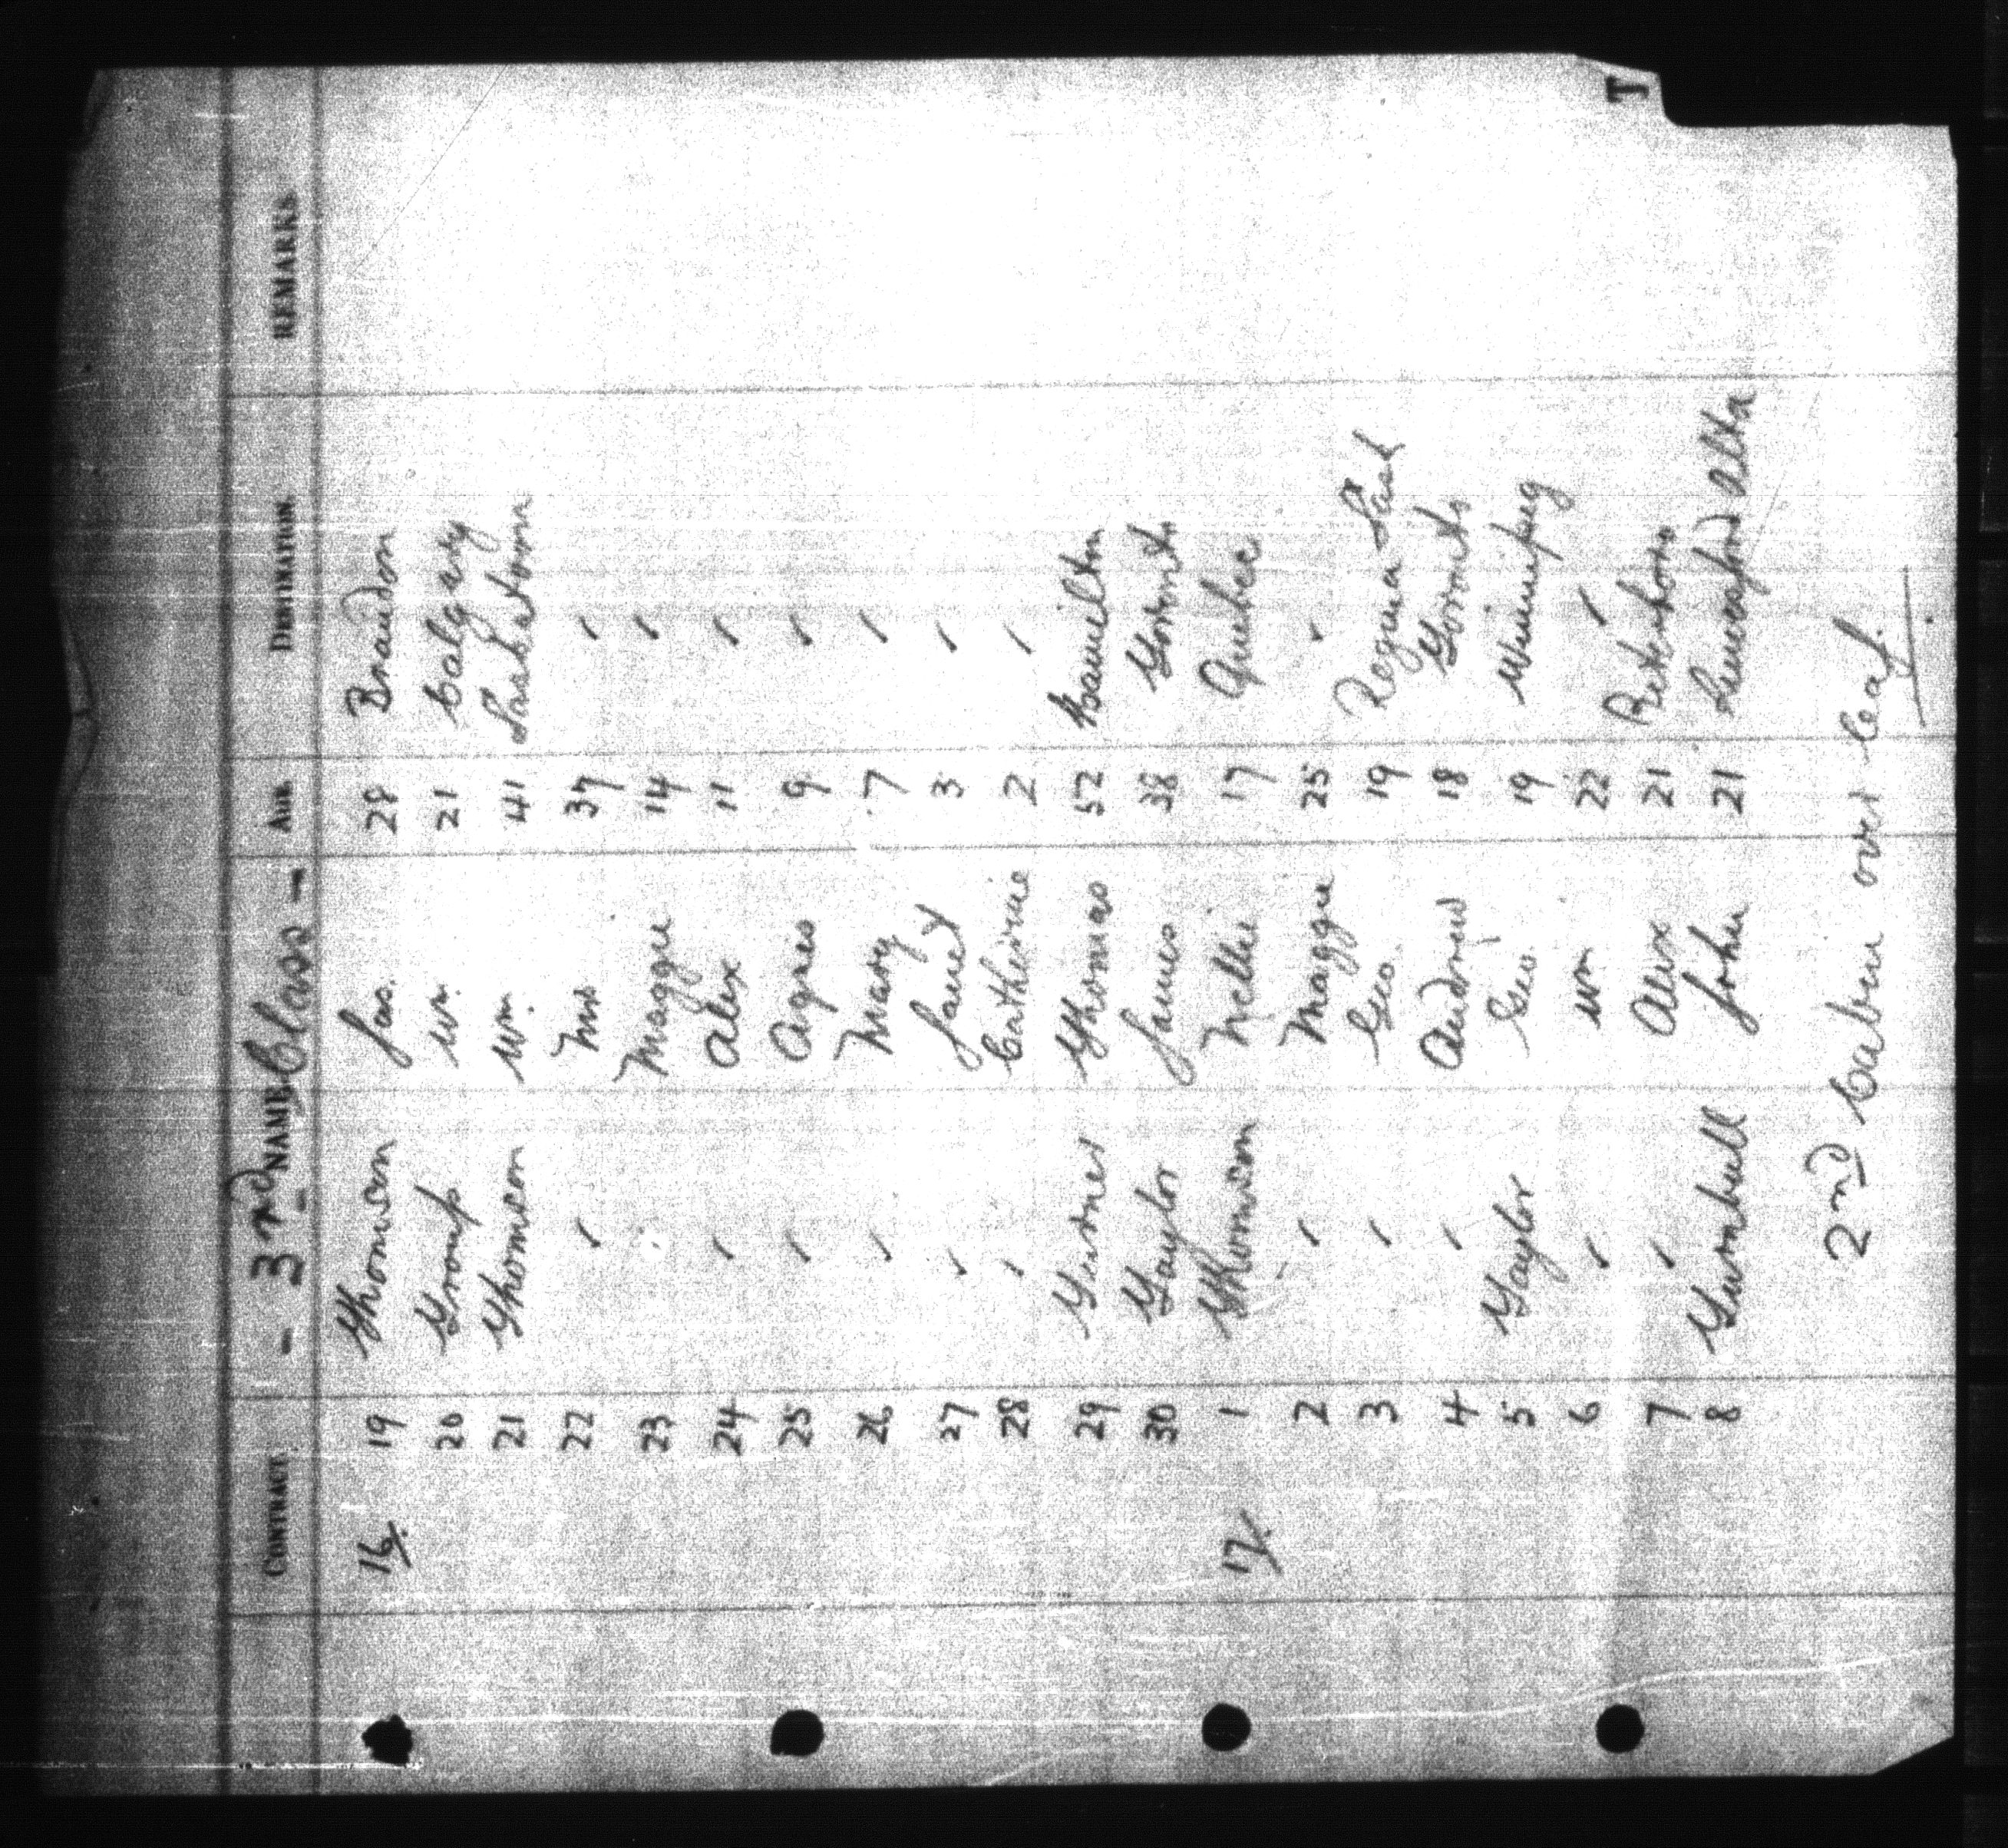 - 3rd Class -
CONTRACT. NAME. AGE. DESTINATION. REMARKS
16/. 19 Thomson Jas. 28 Brandon
20 Troup Wm. 21 Calgary
21 Thomson Wm. 41 Saskatoon
22 ✓ Mrs 37 ✓
23 Maggie 14 ✓
24 ✓ Alex 11 ✓
25 ✓ Agnes 9 ✓
26 ✓ Mary 7 ✓
27 ✓ Janet 3 ✓
28 ✓ Catherine 2 ✓
29 Turner Thomas 52 Hamilton
30 Taylor James 38 Toronto
17/. 1 Thomson Nellie 17 Quebec
2 ✓ Maggie 25 ✓
3 ✓ Geo. 19 Regina Sask
4 ✓ Andrew 18 Toronto
5 Taylor Geo. 19 Winnipeg
6 ✓ Wm 22 ✓
7 ✓ Alex 21
8 Turnbull John 21 Alta
2nd Cabin over leaf.
T